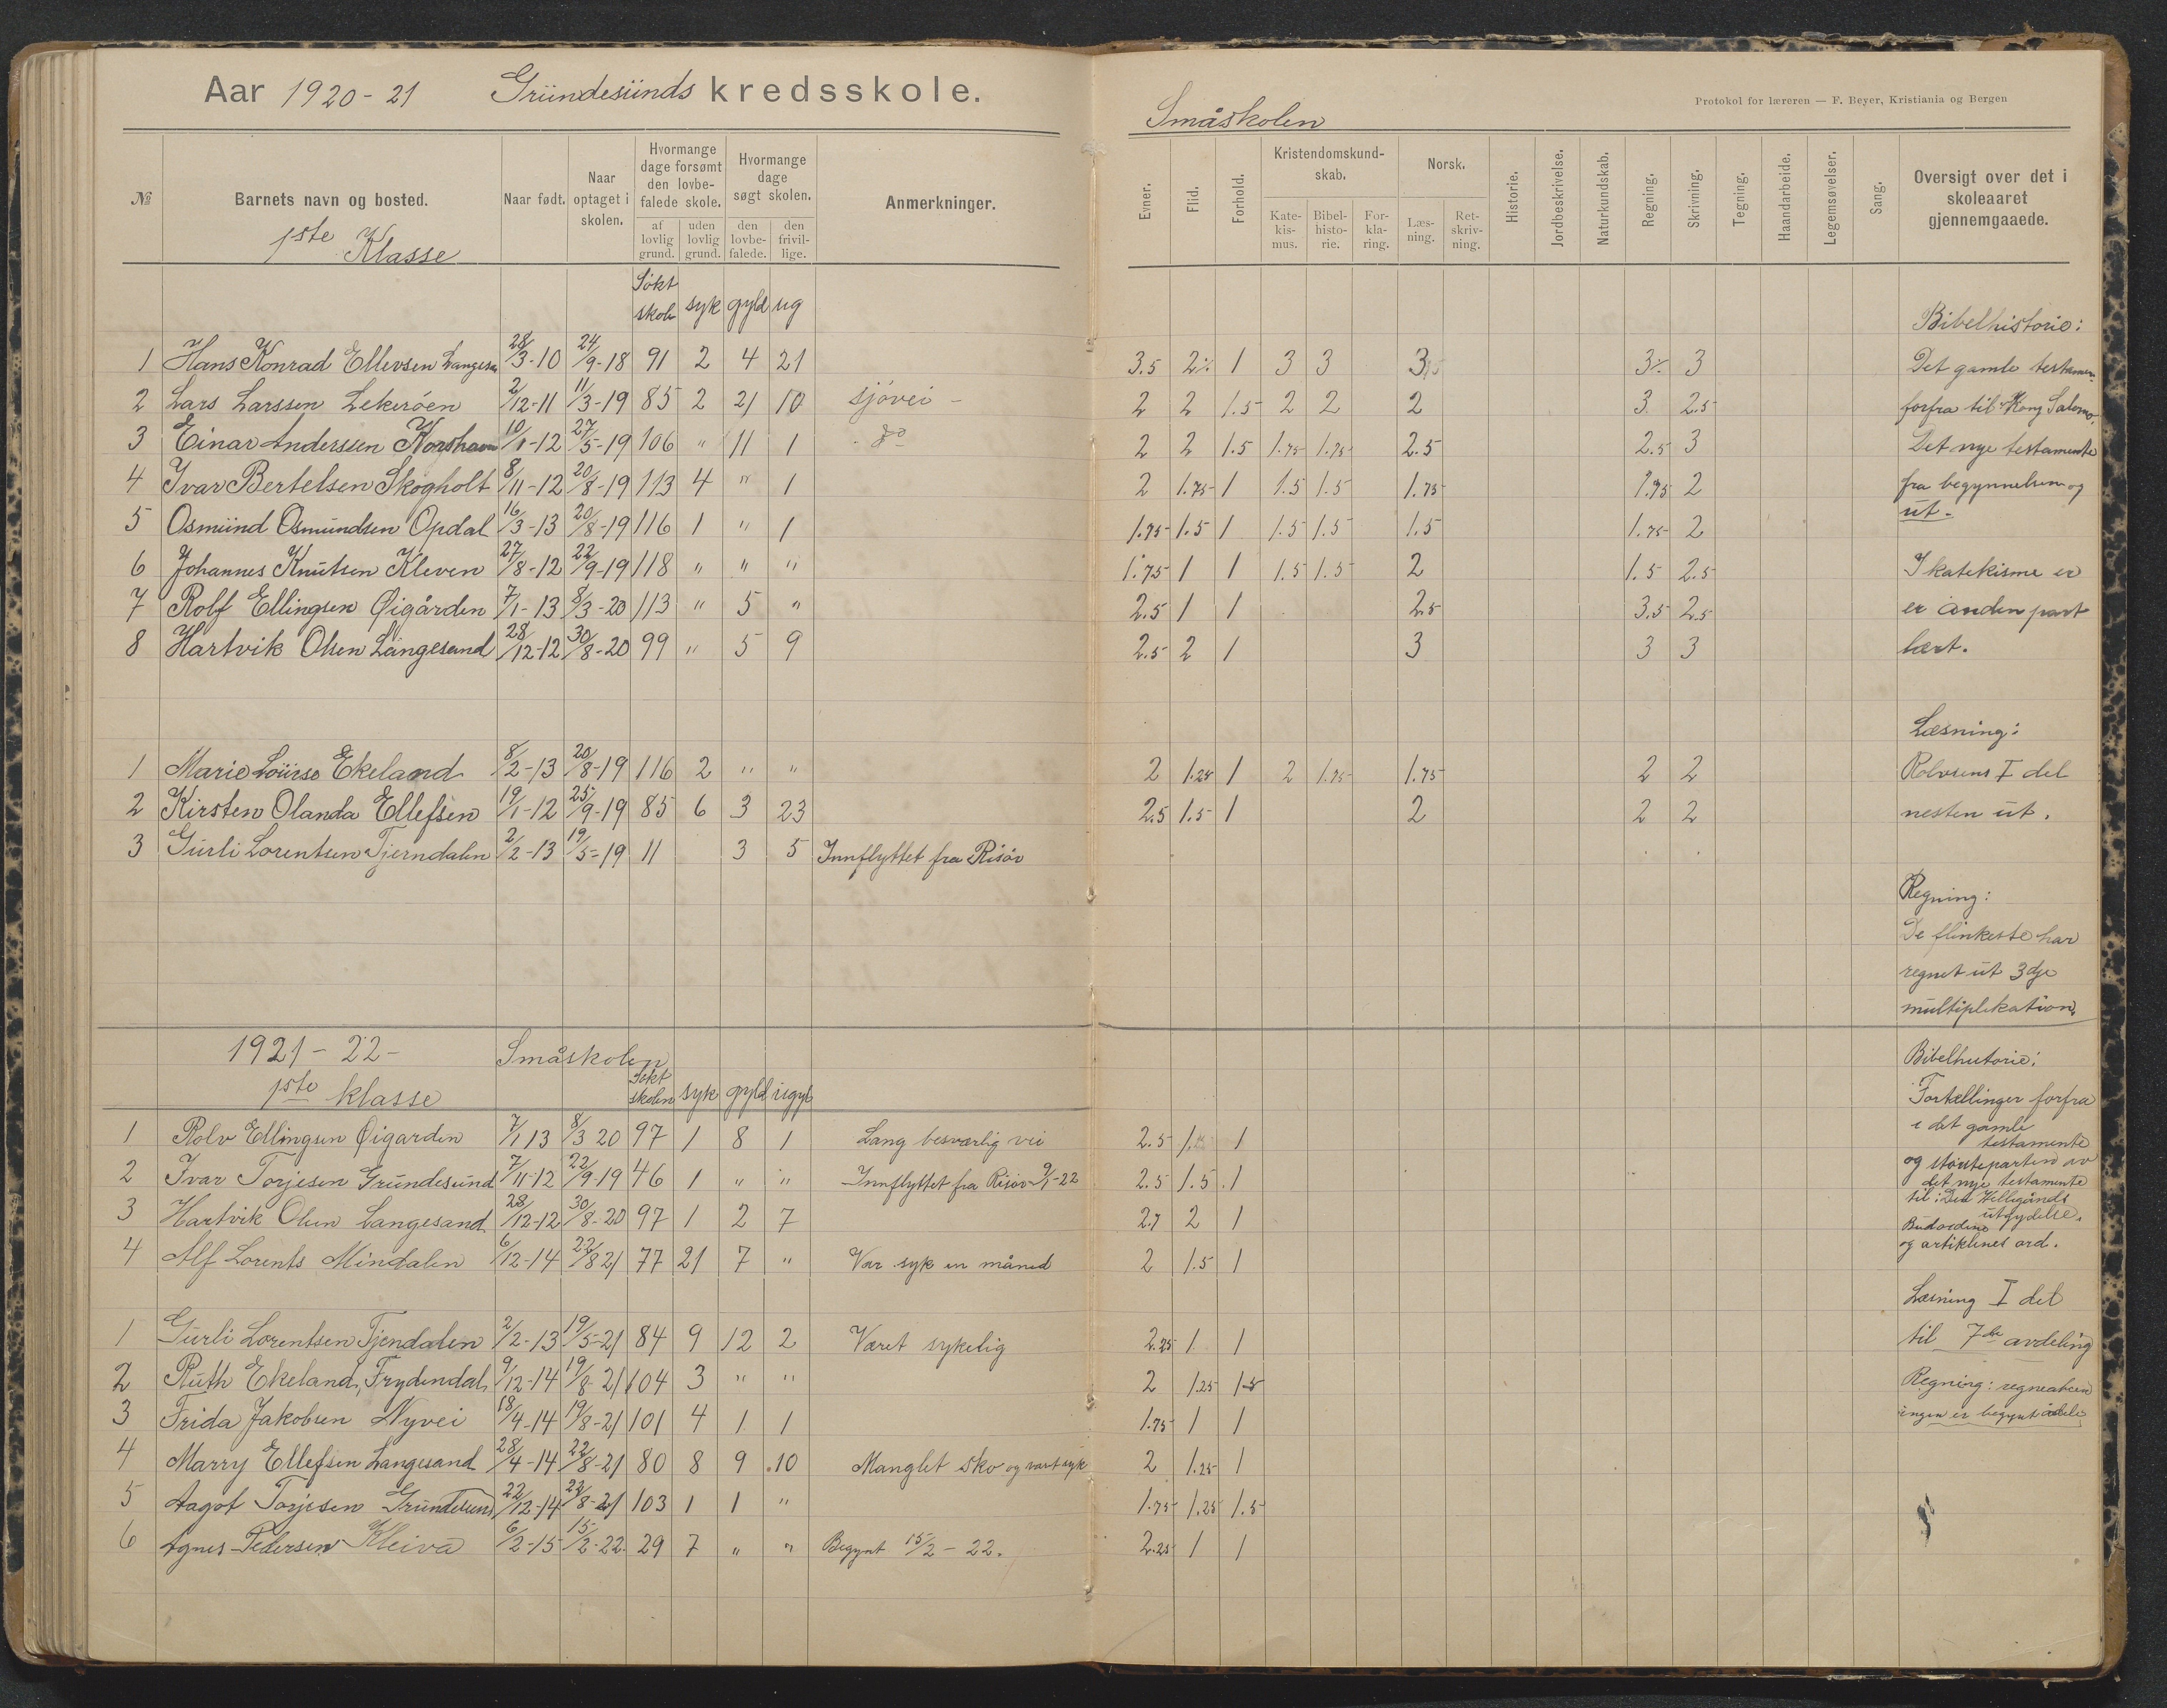 Aar 1920-21 Gründesünds kredsskole.
Småskolen
Protokol for læreren — F. Beyer, Kristiania og Bergen
№ Barnets navn og bosted. Naar født. Naar optaget i skolen. Hvormange dage forsømt den lovbefalede skole. af lovlig grund. uden lovlig grund. Hvormange dage søgt skolen. den lovbefalede. den frivillige. Anmerkninger.
Evner. Flid. Forhold. Kristendomskundskab. Katekismus. Bibelhistorie. Forklaring. Norsk. Læsning. Retskrivning. Historie. Jordbeskrivelse. Naturkundskab. Regning. Skrivning. Tegning. Haandarbeide. Legemsøvelser. Sang. Oversigt over det i skoleaaret gjennemgaaede.
1ste Klasse
Søkt skole syk gyld ug
1 Hans Konrad Ellevsen Langesa 28/3-10 24/9-18 91 2 4 21 3.5 2 1 3 3 3 3 3
2 Lars Larssen Lekerøen 2/12-11 11/3-19 85 2 21 10 sjøvei - 2 2 1.5 2 2 2 3 2.5
3 Einar Anderssen Korshavn 10/1-12 27/5-19 106 " 11 1 do 2 2 1.5 1.75 1.75 2.5 2.5 3
4 Ivar Bertelsen Skogholt 8/11-12 20/8-19 113 4 " 1 2 1.75 1 1.5 1.5 1.75 1.75 2
5 Osmünd Osmundsen Opdal 16/3-13 20/8-19 116 1 " 1 1.75 1.5 1 1.5 1.5 1.5 1.75 2
6 Johannes Knütsen Kleven 27/8-12 22/9-19 118 " " " 1.75 1 1 1.5 1.5 2 1.5 2.5
7 Rolf Ellingsen Øigården 7/1-13 8/3-20 113 " 5 " 2.5 1 1 2.5 3.5 2.5
8 Hartvik Olsen Langesand 28/12-12 30/8-20 99 " 5 9 2.5 2 1 3 3 3
1 Marie Loüise Ekeland 8/2-13 20/8-19 116 2 " " 2 1.25 1 2 1.75 1.75 2 2
2 Kirsten Olanda Ellefsen 19/1-12 25/9-19 85 6 3 23 2.5 1.5 1 2 2 2
3 Gürli Lorentsen Tjerndalen 2/2-13 19/5-19 11 3 5 Innflyttet fra Risør
Bibelhistorie:
Det gamle testamen.
forfra til Kong Salomo.
Det nye testamente
fra begynnelsen og
ut.
I katekisme er
er anden part
lært.
Læsning:
Rolvsens I del
nesten üt.
Regning:
De flinkeste har
regnet üt 3dje
mültiplikation.
1921-22- Småskolen
1ste klasse Søkt skolen syk gyld ugyl
1 Rolv Ellingsen Øigarden 7/1 13 8/3 20 97 1 8 1 Lang besværlig vei 2.5 1. 1
2 Ivar Torjesen Gründesund 7/11-12 22/9-19 46 1 " " Innflyttet fra Risør 9/1-22 2.5 1.5 1
3 Hartvik Olsen Langesand 28/12-12 30/8-20 97 1 2 7 2.7 2 1
4 Alf Lorents Mindalen 6/12-14 22/8 21 77 21 7 " Var syk en måned 2 1.5 1
1 Gürli Lorentsen Tjendalen 2/2-13 19/5-21 84 9 12 2 Været sykelig 2.25 1 1
2 Rüth Ekeland, Frydendal 9/12-14 19/8-21 104 3 " " 2 1.25 1.5
3 Frida Jakobsen Nyvei 18/4-14 19/8-21 101 4 1 1 1.75 1 1
4 Marry Ellefsen Langesand 28/4-14 22/8-21 80 8 9 10 Manglet sko og vært syk 2 1.25 1
5 Aagot Torjesen Gründesund 22/12-14 22/8-21 103 1 1 " 1.75 1.25 1.5
6 Agnes Pedersen Kleiva 6/2-15 15/2-22 29 7 " " Begynt 15/2-22. 2.25 1 1
Bibelhistorie:
Fortællinger forfra
i det gamle
testamente
og størsteparten av
det nye testamente
til: Den Helligånds
utgydelse.
Budordene
og artiklenes ord.
Læsning I del
til 7de avdeling
Regning:
ingen er begynt